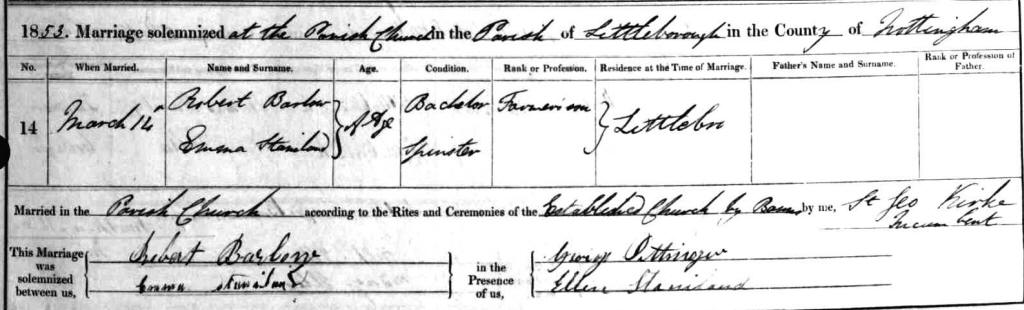 1853. Marriage solemnized at the Parish Church in the Parish of Littleborough in the County of Nottingham
No. When Married. Name and Surname. Age. Condition. Rank or Profession. Residence at the Time of Marriage. Father's Name and Surname. Rank or Profession of Father.
14 March 14 Robert Barlow Of Age Bachelor Littlebro
Emma Staniland Spinster
Married in the Parish Church according to the Rites and Ceremonies of the Established Church by Banns by me, St Geo Kirke
Incumbent
This Marriage was solemnized between us, Robert Barlow in the Presence of us, George
Emma Staniland Ellen Staniland